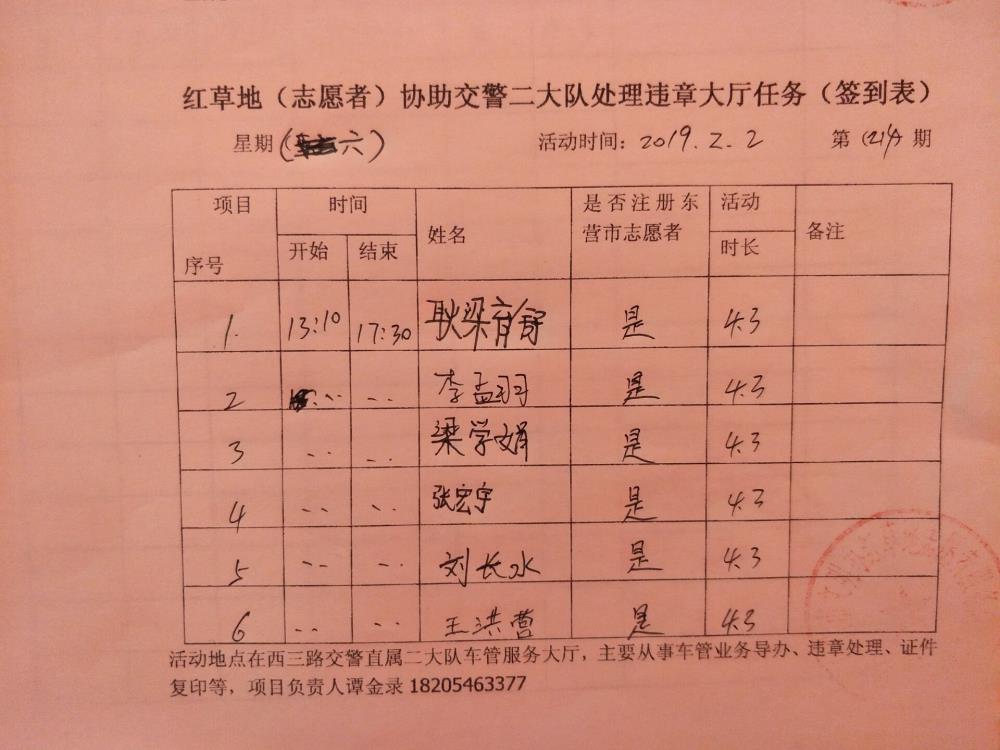 红草地（志愿者）协助交警二大队处理违章大厅任务（签到表）
星期（六） 活动时间：2019.2.2 第（214）期
项目 时间 姓名 是否注册东营市志愿者 活动时长 备注
序号 开始 结束
1. 13:10 17:30 耿梁育舒 是 4.3
2 ‥ ‥ 李孟羽 是 4.3
3 ‥ ‥ 梁学娟 是 4.3
4 ‥ ‥ 张宏宇 是 4.3
5 ‥ ‥ 刘长水 是 4.3
6 ‥ ‥ 王洪营 是 4.3
活动地点在西三路交警直属二大队车管服务大厅，主要从事车管业务导办、违章处理、证件
复印等，项目负责人谭金录 18205463377